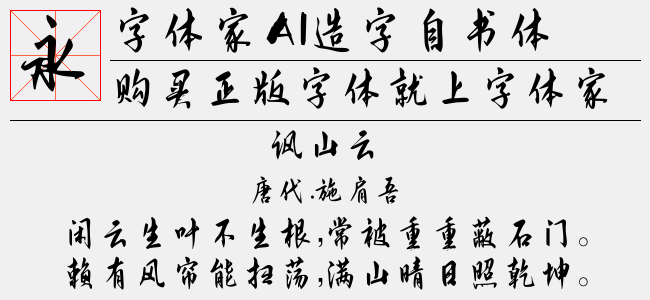 永
字体家AI造字自书体
购买正版字体就上字体家
讽山云
唐代.施肩吾
闲云生叶不生根,常被重重蔽石门。
赖有风帘能扫荡,满山晴日照乾坤。